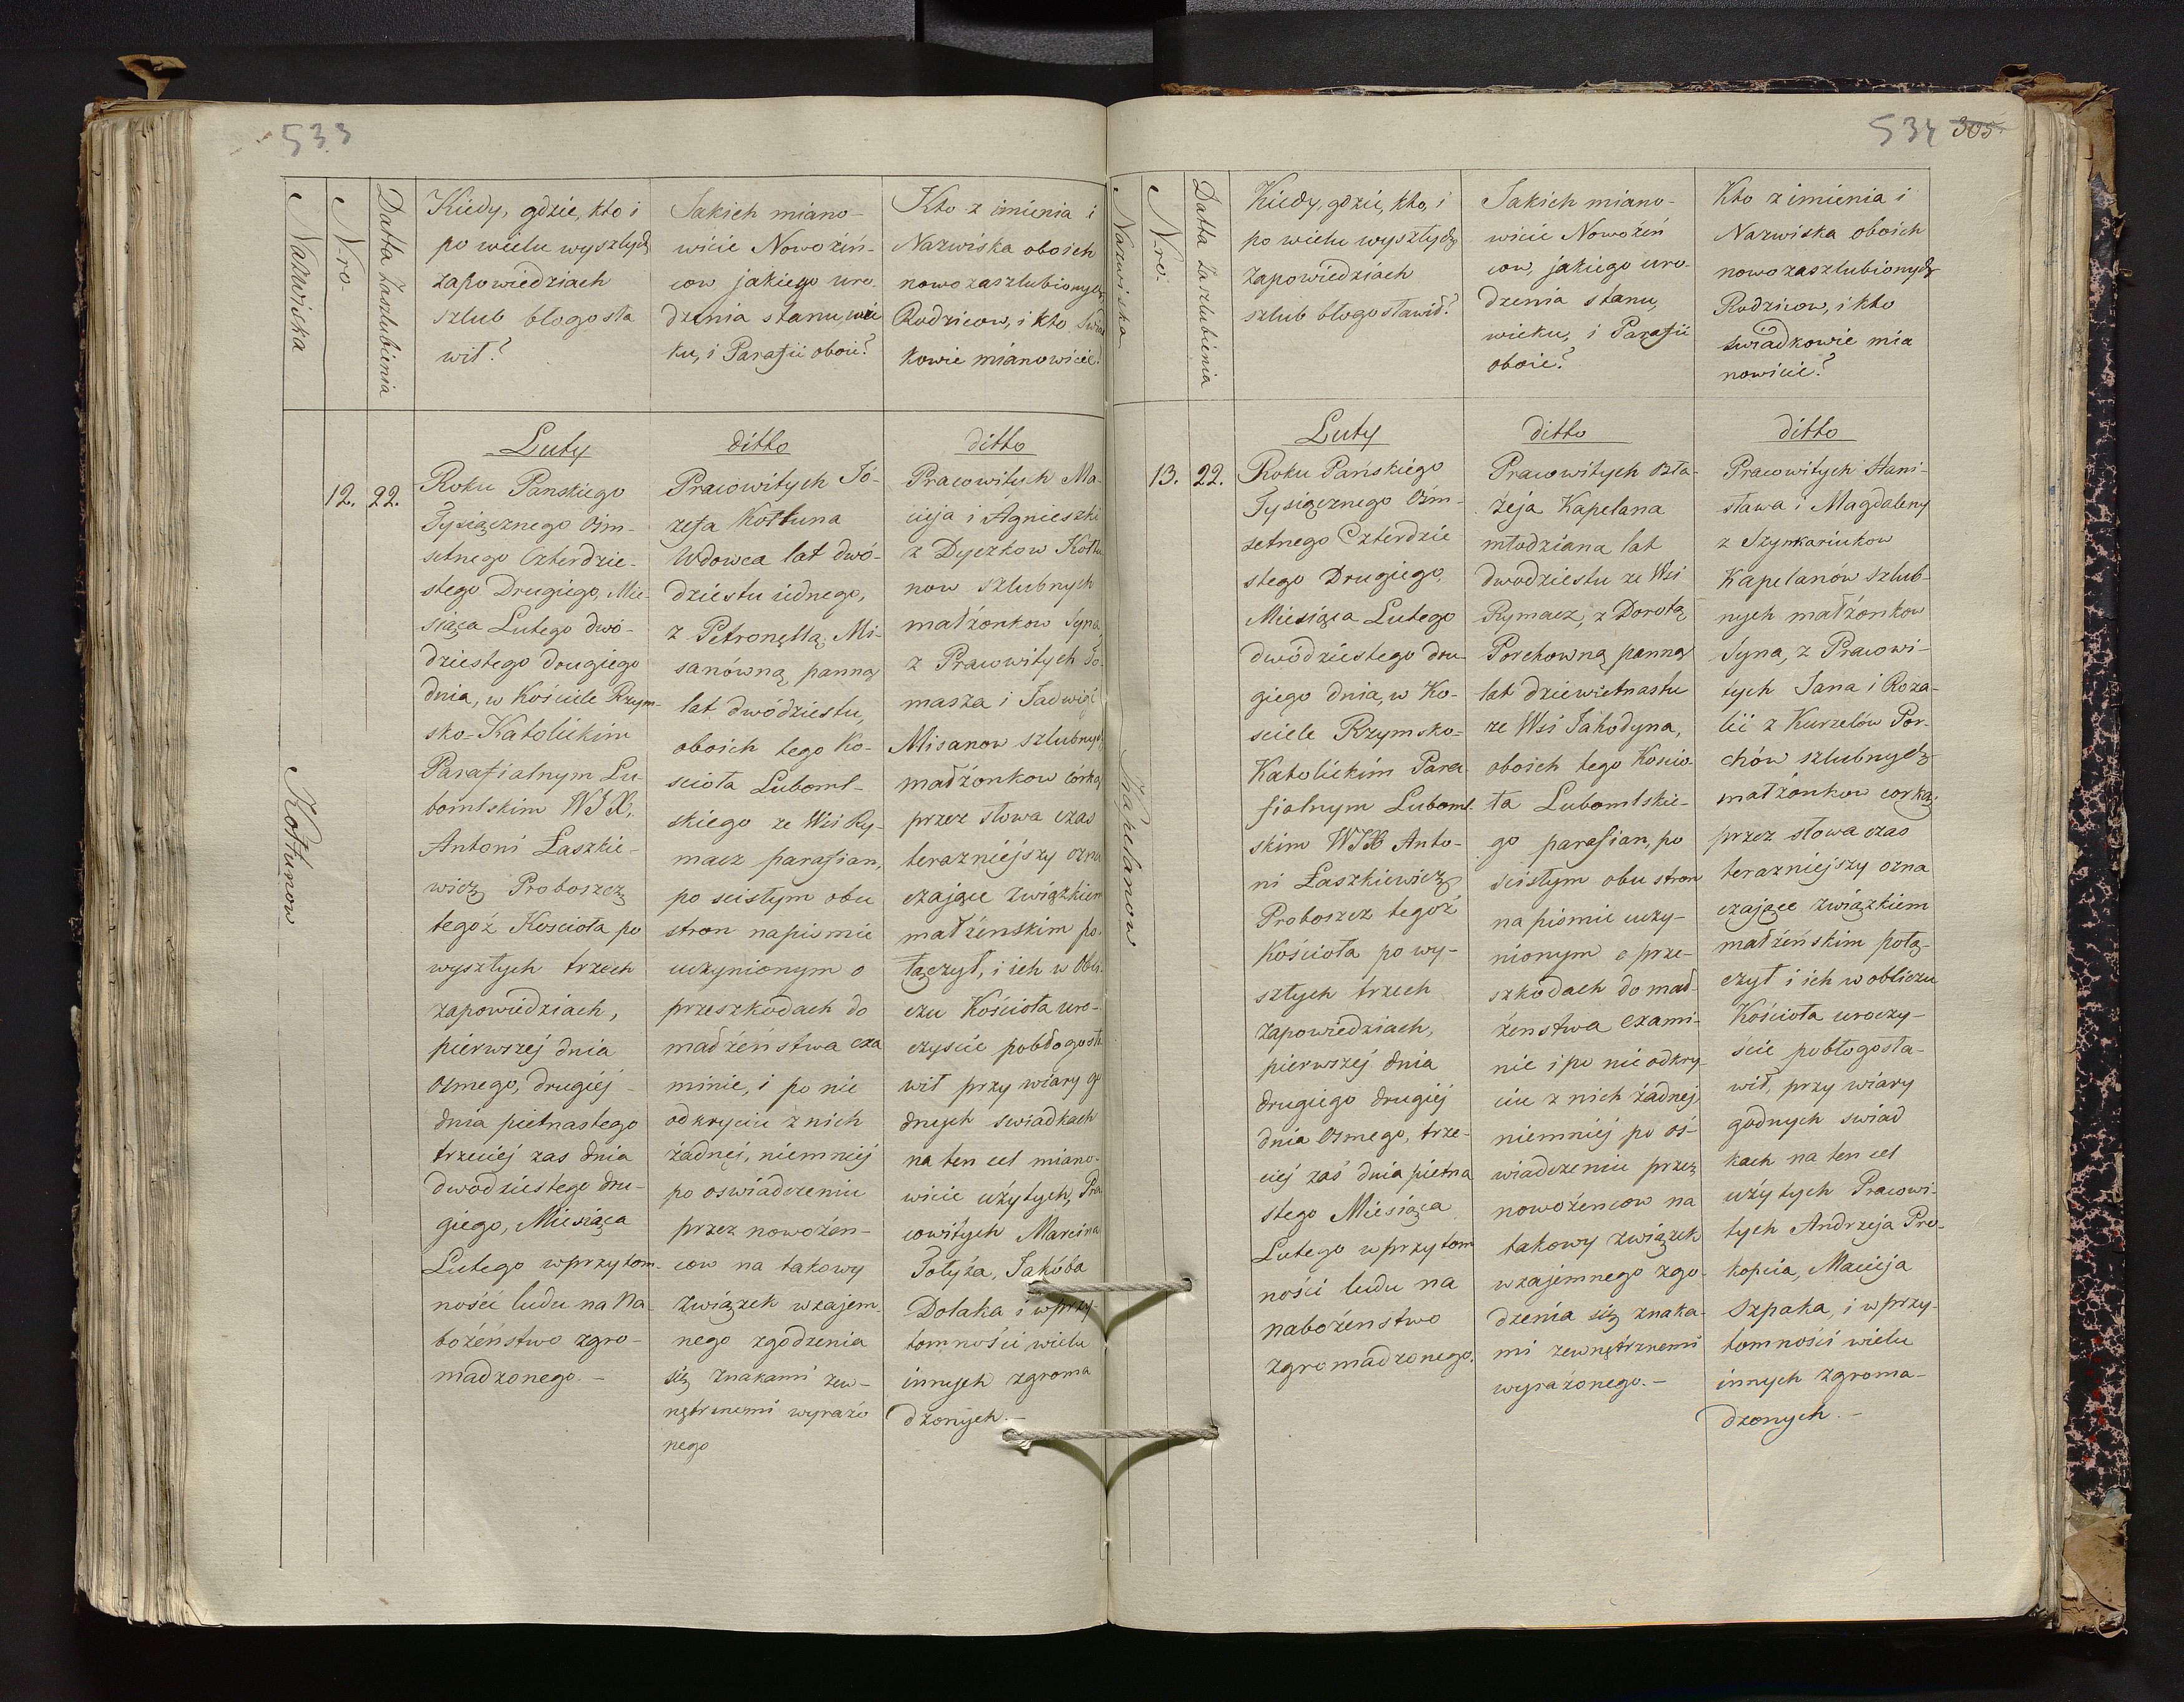 533
Nazwiska
Nro.
Datta Zaszlubinia
Kiedy, gdzie, kto i
po wielu wyszłych
zapowiedziach
szlub błogosła
wił?
Jakich miano-
wicie Nowożiń-
cow jakiego uro-
dzenia stanu wie
ku, i Parafii oboie?
Kto z imienia i
Nazwiska oboich
nowozaszlubionych
Rodzicow, i kto swiad
kowie mianowicie?
Kołtunow
12.
22.
Luty
Roku Panskiego
Tysiącznego Ośm-
setnego Czterdzie-
stego Drugiego, Mie-
siąca Lutego dwó-
dziestego drugiego
dnia, w Kościele Rzym-
sko-Katolickim
Parafialnym Lu-
bomlskim WJX.
Antoni Łaszkie-
wicz Proboszcz
tegoż Kościoła po
wyszłych trzech
zapowiedziach,
pierwszej dnia
osmego, drugiéj
dnia pietnastego
trzeciéj zas dnia
dwodziestego dru-
giego, Miesiąca
Lutego wprzytom-
ności ludu na Na-
bożeństwo zgro-
madzonego.-
ditto
Pracowitych Jó-
zefa Kołtuna
Wdowca lat dwó-
dziestu iednego,
z Petronęllą Mi-
sanówną panną
lat dwódziestu,
oboich tego Ko-
scioła Luboml-
skiego ze Wsi Ry-
macz parafian,
po scisłym obu
stron napismie
uczynionym o
przeszkodach do
madżeństwa exa
minie, i po nie
odkryciu z nich
żadnéj, niemniéj
po oswiadczeniu
przez nowożen-
cow na takowy
związek wzajem-
nego zgodzenia
się znakami zew-
nętrznemi wyrażo
nego
ditto
Pracowitych Ma-
cieja i Agnieszki
z Dyczkow Kołtu
now szlubnych
małżonkow Syna
z Pracowitych To-
masza i Jadwigi
Misanow szlubnych
madżonkow córką
przez słowa czas
terazniejszy ozna
czające związkiem
małżenskim po-
łączył, i ich w Obli-
czu Kościoła uro-
czyscie pobłogosła
wił przy wiary go
dnych swiadkach
na ten cel miano-
wicie użytych, Pra
cowitych Marcina
Tołyża, Jakóba
Dolaka i wprzy-
tomności wielu
innych zgroma
dzonych.-
534 305
Nazwiska
Nro.
Datta Zaszlubinia
Kiedy, gdzie, kto, i
po wielu wyszłych
zapowiedziach
szlub błogosławił?
Jakich miano-
wicie Nowożiń
cow, jakiego uro-
dzenia stanu,
wieku, i Parafii
oboie?
Kto z imienia i
Nazwiska oboich
nowozaszlubionych
Rodzicow, i kto
swiadkowie mia
nowicie?
Kapelanow
13.
22.
Luty
Roku Pańskiego
Tysiącznego Ośm-
setnego Czterdzie
stego Drugiego,
Miesiąca Lutego
dwódziestego dru
giego dnia, w Ko-
sciele Rzymsko-
Katolickim Para
fialnym Luboml-
skim WJX Anto-
ni Łaszkiewicz
Proboszcz tegoż
Kościoła po wy-
szłych trzech
zapowiedziach,
pierwszéj dnia
drugiego drugiéj
dnia Osmego, trze-
ciéj zaś dnia pietna
stego Miesiąca
Lutego wprzytom
ności ludu na
nabożeństwo
zgromadzonego.
ditto
Pracowitych Bła-
żeja Kapelana
młodziana lat
dwodziestu ze Wsi
Rymacz, z Dorotą
Porchowną panną
lat dziewietnastu
ze Wsi Jahodyna,
oboich tego Koscio-
ła Lubomlskie-
go parafian, po
scisłym obu stron
na pismie uczy-
nionym o prze-
szkodach do mał-
żenstwa exami-
nie i po nie odkry-
ciu z nich żadnej,
niemniéj po oś-
wiadczeniu przez
nowożencow na
takowy związek
wzajemnego zgo-
dzenia się znaka-
mi zewnętrznemi
wyrażonego.-
ditto
Pracowitych Stani-
sława i Magdaleny
z Szynkariukow
Kapelanów szlub-
nych małżonkow
Syna, z Pracowi-
tych Jana i Roza-
lii z Kurzelów Por-
chów szlubnych
małżonkow corką
przez słowa czas
terazniejszy ozna
czające związkiem
małżeńskim połą-
czył i ich wobliczu
Kościoła uroczy-
scie pobłogosła-
wił, przy wiary
godnych swiad
kach na ten cel
użytych Pracowi-
tych Andrzeja Pro-
kopcia, Macieja
Szpaka, i w przy-
tomności wielu
innych zgroma-
dzonych.-